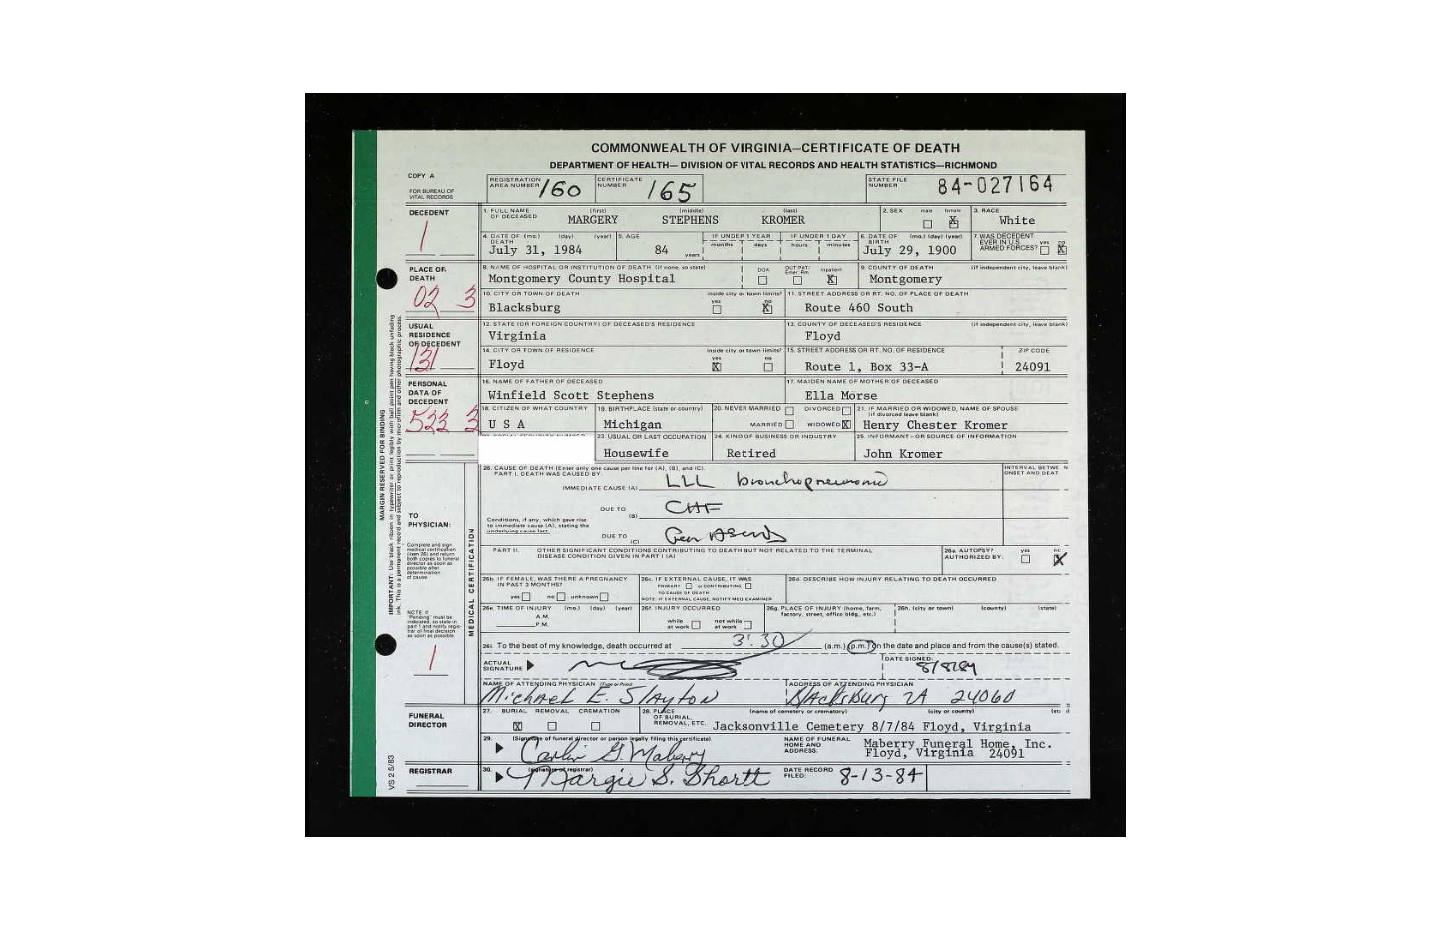 COMMONWEALTH OF VIRGINIA—CERTIFICATE OF DEATH
DEPARTMENT OF HEALTH— DIVISION OF VITAL RECORDS AND HEALTH STATISTICS—RICHMOND
COPY A
FOR BUREAU OF VITAL RECORDS
REGISTRATION AREA NUMBER 160 CERTIFICATE NUMBER 165 STATE FILE NUMBER 84-027164
DECEDENT 1
1. FULL NAME OF DECEASED (first) (middle) (last) 2. SEX male female 3. RACE
MARGERY STEPHENS KROMER X White
4. DATE OF DEATH (mo.) (day) (year) 5. AGE IF UNDER 1 YEAR months days IF UNDER 1 DAY hours minutes 6. DATE OF BIRTH (mo.) (day) (year) 7. WAS DECEDENT EVER IN U.S. ARMED FORCES? yes no
July 31, 1984 84 years July 29, 1900 X
PLACE OF DEATH 02 3
8. NAME OF HOSPITAL OR INSTITUTION OF DEATH (if none, so state) DOA OUT PAT/ Emer. Rm. Inpatient 9. COUNTY OF DEATH (if independent city, leave blank)
Montgomery County Hospital X Montgomery
10. CITY OR TOWN OF DEATH inside city or town limits? yes no 11. STREET ADDRESS OR RT. NO. OF PLACE OF DEATH
Blacksburg X Route 460 South
USUAL RESIDENCE OF DECEDENT 131
12. STATE (OR FOREIGN COUNTRY) OF DECEASED'S RESIDENCE 13. COUNTY OF DECEASED'S RESIDENCE (if independent city, leave blank)
Virginia Floyd
14. CITY OR TOWN OF RESIDENCE inside city or town limits? yes no 15. STREET ADDRESS OR RT. NO. OF RESIDENCE ZIP CODE
Floyd X Route 1, Box 33-A 24091
PERSONAL DATA OF DECEDENT 522 3
16. NAME OF FATHER OF DECEASED 17. MAIDEN NAME OF MOTHER OF DECEASED
Winfield Scott Stephens Ella Morse
18. CITIZEN OF WHAT COUNTRY 19. BIRTHPLACE (state or country) 20. NEVER MARRIED DIVORCED MARRIED WIDOWED X 21. IF MARRIED OR WIDOWED, NAME OF SPOUSE (if divorced leave blank)
U S A Michigan Henry Chester Kromer
23. USUAL OR LAST OCCUPATION 24. KIND OF BUSINESS OR INDUSTRY 25. INFORMANT - OR SOURCE OF INFORMATION
Housewife Retired John Kromer
MARGIN RESERVED FOR BINDING
IMPORTANT: Use black ribbon in typewriter or print legibly with ball point pen having black unfading ink. This is a permanent record and subject to reproduction by microfilm and other photographic process.
TO PHYSICIAN:
Complete and sign medical certification (item 26) and return both copies to funeral director as soon as possible after determination of cause
NOTE: If "Pending" must be indicated, so state in part 1 and notify registrar of final decision as soon as possible
1
MEDICAL CERTIFICATION
26. CAUSE OF DEATH (Enter only one cause per line for (A), (B), and (C). INTERVAL BETWEEN ONSET AND DEAT
PART I. DEATH WAS CAUSED BY:
IMMEDIATE CAUSE (A) LLL bronchopneumonia
DUE TO (B) CHF
Conditions, if any, which gave rise to immediate cause (A), stating the underlying cause last.
DUE TO (C) Gen
PART II. OTHER SIGNIFICANT CONDITIONS CONTRIBUTING TO DEATH BUT NOT RELATED TO THE TERMINAL DISEASE CONDITION GIVEN IN PART I (A) 26a. AUTOPSY? AUTHORIZED BY: yes no X
26b. IF FEMALE, WAS THERE A PREGNANCY IN PAST 3 MONTHS? yes no unknown 26c. IF EXTERNAL CAUSE, IT WAS PRIMARY or CONTRIBUTING TO CAUSE OF DEATH NOTE: IF EXTERNAL CAUSE, NOTIFY MED EXAMINER 26d. DESCRIBE HOW INJURY RELATING TO DEATH OCCURRED
26e. TIME OF INJURY (mo.) (day) (year) A.M. P.M. 26f. INJURY OCCURRED while at work not while at work 26g. PLACE OF INJURY (home, farm, factory, street, office bldg., etc.) 26h. (city or town) (county) (state)
26i. To the best of my knowledge, death occurred at 3:30 (a.m.) (p.m.) on the date and place and from the cause(s) stated.
ACTUAL SIGNATURE DATE SIGNED: 8/8/84
NAME OF ATTENDING PHYSICIAN (Type or Print) ADDRESS OF ATTENDING PHYSICIAN
Michael E. Slayton Blacksburg VA 24060
FUNERAL DIRECTOR
27. BURIAL REMOVAL CREMATION X 28. PLACE OF BURIAL, REMOVAL, ETC. (name of cemetery or crematory) (city or county)
Jacksonville Cemetery 8/7/84 Floyd, Virginia
29. (Signature of funeral director or person legally filing this certificate) NAME OF FUNERAL HOME AND ADDRESS:
Carlin G. Maberry Maberry Funeral Home, Inc.
Floyd, Virginia 24091
REGISTRAR 30. (signature of registrar) Margie S. Shortt DATE RECORD FILED: 8-13-84
VS 2 5/83